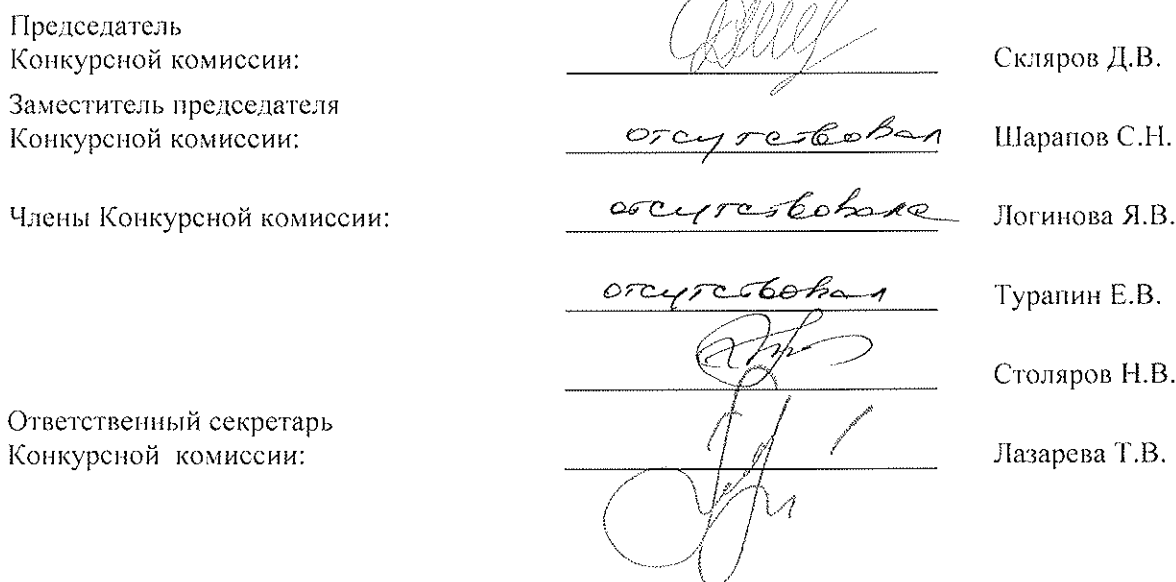 Председатель
Конкурсной комиссии: Скляров Д.В.
Заместитель председателя
Конкурсной комиссии: отсутствовал Шарапов С.Н.
Члены Конкурсной комиссии: отсутствовала Логинова Я.В.
отсутствовал Турапин Е.В.
Столяров Н.В.
Ответственный секретарь
Конкурсной комиссии: Лазарева Т.В.